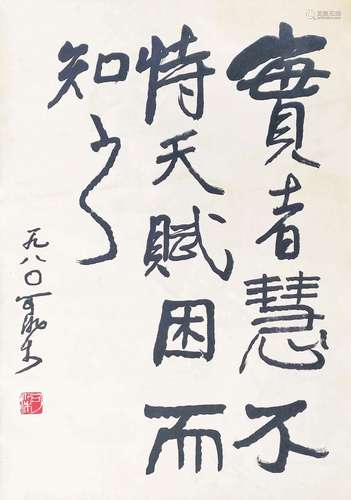 實者慧不
恃天賦困而
知之
一九八〇可染